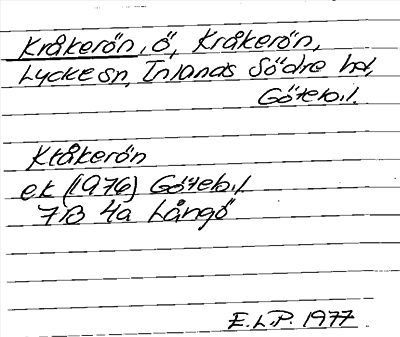 Kråkerön, ö, Kråkerön,
Lycke sn, Inlands Södre hd,
Göteb.l.
Kråkerön
ek (1976) Göteb.l
7B 4a Långö
E.L.P. 1977